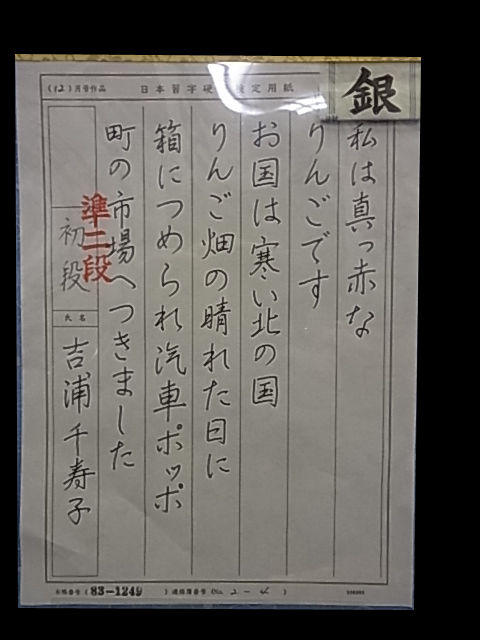 (12)月号作品 日本習字硬 定用紙
銀
私は真っ赤な
りんごです
お国は寒い北の国
りんご畑の晴れた日に
箱につめられ汽車ポッポ
町の市場へつきました
準二段
初段
氏名
吉浦千寿子
(83-1249) (No. 2-4)